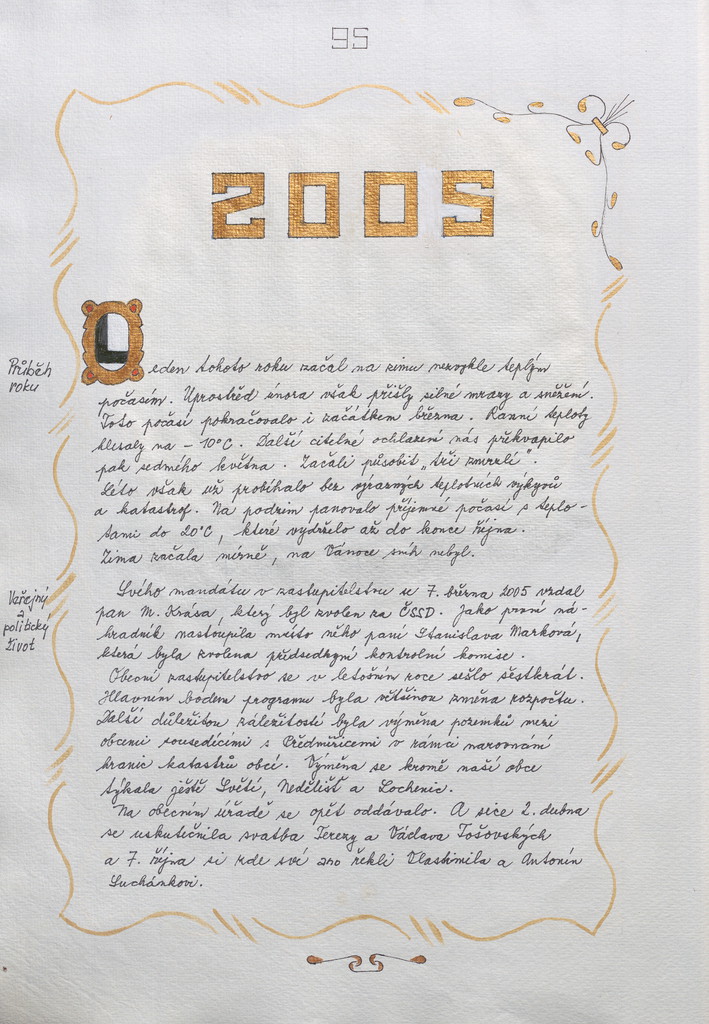 95
2005
Průběh
roku
Leden tohoto roku začal na zimu nezvykle teplým
počasím. Uprostřed února však přišly silné mrazy a sněžení.
Toto počasí pokračovalo i začátkem března. Ranní teploty
klesaly na – 10°C. Další citelné ochlazení nás překvapilo
pak sedmého května. Začali působit „tři zmrzlí".
Léto však už probíhalo bez výrazných teplotních výkyvů
a katastrof. Na podzim panovalo příjemné počasí s teplo-
tami do 20°C, které vydrželo až do konce října.
Zima začala mírně, na Vánoce sníh nebyl.
Veřejný
a
politický
život
Svého mandátu v zastupitelstvu se 7. března 2005 vzdal
pan M. Krása, který byl zvolen za ČSSD. Jako první ná-
hradník nastoupila místo něho paní Stanislava Marková,
která byla zvolena předsedkyní kontrolní komise.
Obecní zastupitelstvo se v letošním roce sešlo šestkrát.
Hlavním bodem programu byla většinou změna rozpočtu.
Další důležitou záležitostí byla výměna pozemků mezi
obcemi sousedícími s Předměřicemi v rámci narovnání
hranic katastrů obcí. Výměna se kromě naší obce
týkala ještě Světí, Nedělišť a Lochenic.
Na obecním úřadě se opět oddávalo. A sice 2. dubna
se uskutečnila svatba Terezy a Václava Tošovských
a 7. října si zde své ano řekli Vlastimila a Antonín
Suchánkovi.